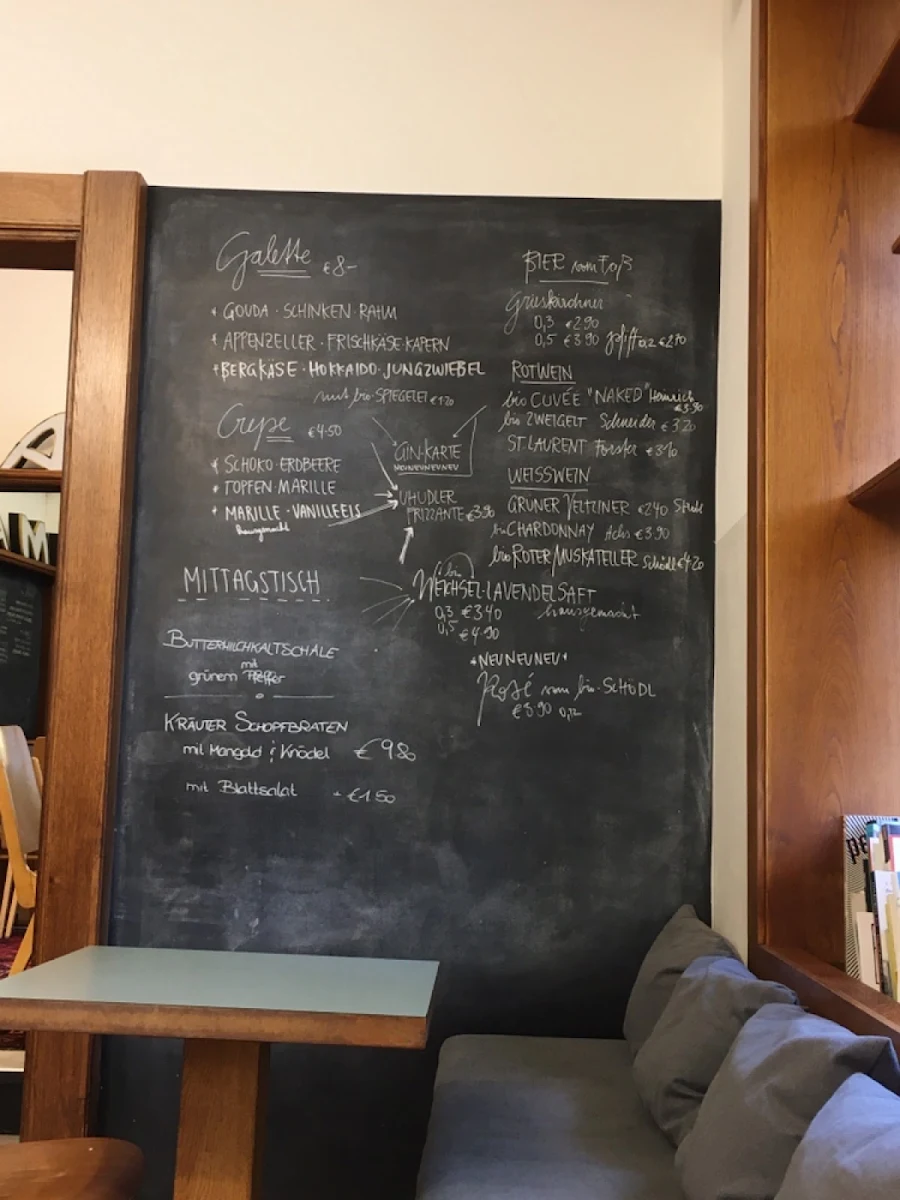 Galette €8-
GOUDA · SCHINKEN · RAHM
APPENZELLER · FRISCHKÄSE · KAPERN
BERGKÄSE · HOKKAIDO · JUNGZWIEBEL
mit bio-SPIEGELEI €1.20
Crepe €4.50
SCHOKO · ERDBEERE
TOPFEN · MARILLE
MARILLE · VANILLEEIS
hausgemacht
MITTAGSTISCH
BUTTERMILCHKALTSCHALE
mit
grünem Pfeffer
KRÄUTER SCHOPFBRATEN
mit Mangold & Knödel €9.80
mit Blattsalat + €1.50
GIN-KARTE
NEUNEUNEUNEU
UHUDLER
FRIZZANTE €3.90
BIER vom Faß
Grieskirchner
0,3 €2.90
0,5 €3.90 0,2 €2.70
ROTWEIN
bio CUVÉE "NAKED" Heinrich
€3.90
bio ZWEIGELT Schneider €3.20
ST.LAURENT Forster
WEISSWEIN
GRÜNER VELTLINER €2.40
bio CHARDONNAY €3.90
bio ROTER MUSKATELLER Schödl €4.20
bio
WEICHSEL-LAVENDELSAFT
0,3 €3.40 hausgemacht
0,5 €4.90
*NEUNEUNEU*
Rosé vom bio-SCHÖDL
€3.90
AM
pe